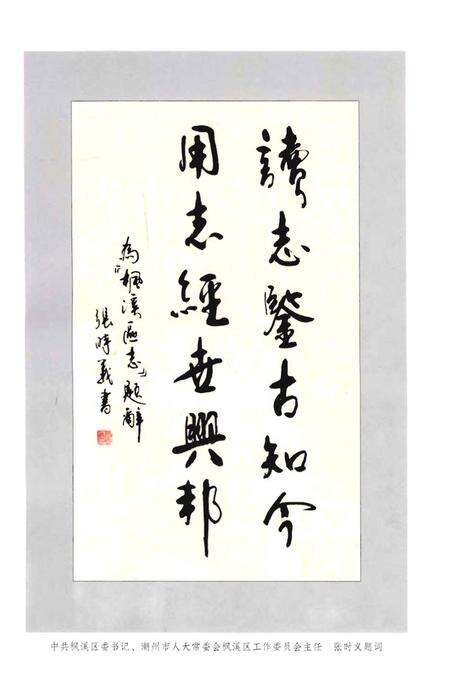 讀志鑒古知今
用志經世興邦
為「楓溪區志」題辭
張時義書
中共枫溪区委书记、潮州市人大常委会枫溪区工作委员会主任　张时义题词